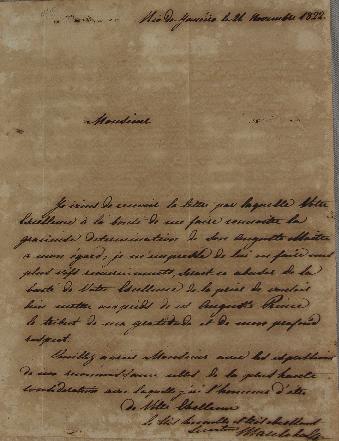 Rio de Janeiro le 26 Novembre 1822.
Monsieur
Je viens de recevoir la lettre par laquelle Votre
Excellence à la bonté de me faire connoitre la
gracieuse determination de Son Auguste Maitre
a mon égard, je m'empresse de lui en faire mes
plus vifs remerciments, abuser de la
bonté de Votre Excellence de la prier de vouloir
bien mettre aux pieds de cet Auguste Prince
le tribut de ma gratitude et de mon profond
respect.
Veuillez Monsieur avec les expressions
de ma reconnoissance celles de la plus haute
consideration avec laquelle j'ai l'honneur d'etre
de Votre Excellence
le très humble et très obeissant